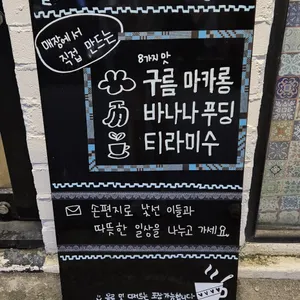 매장에서
직접 만드는
8가지 맛
구름 마카롱
바나나 푸딩
티라미수
손편지로 낯선 이들과
따뜻한 일상을 나누고 가세요.